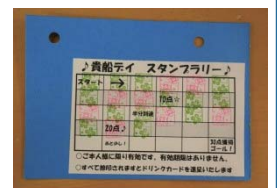 ♪貴船デイ スタンプラリー♪
スタート →
10点☆
半分到達
20点♪
あと少し!
30点獲得
ゴール!
○ご本人様に限り有効です。有効期限はありません。
○すべて捺印されますとドリンクカードを進呈いたします